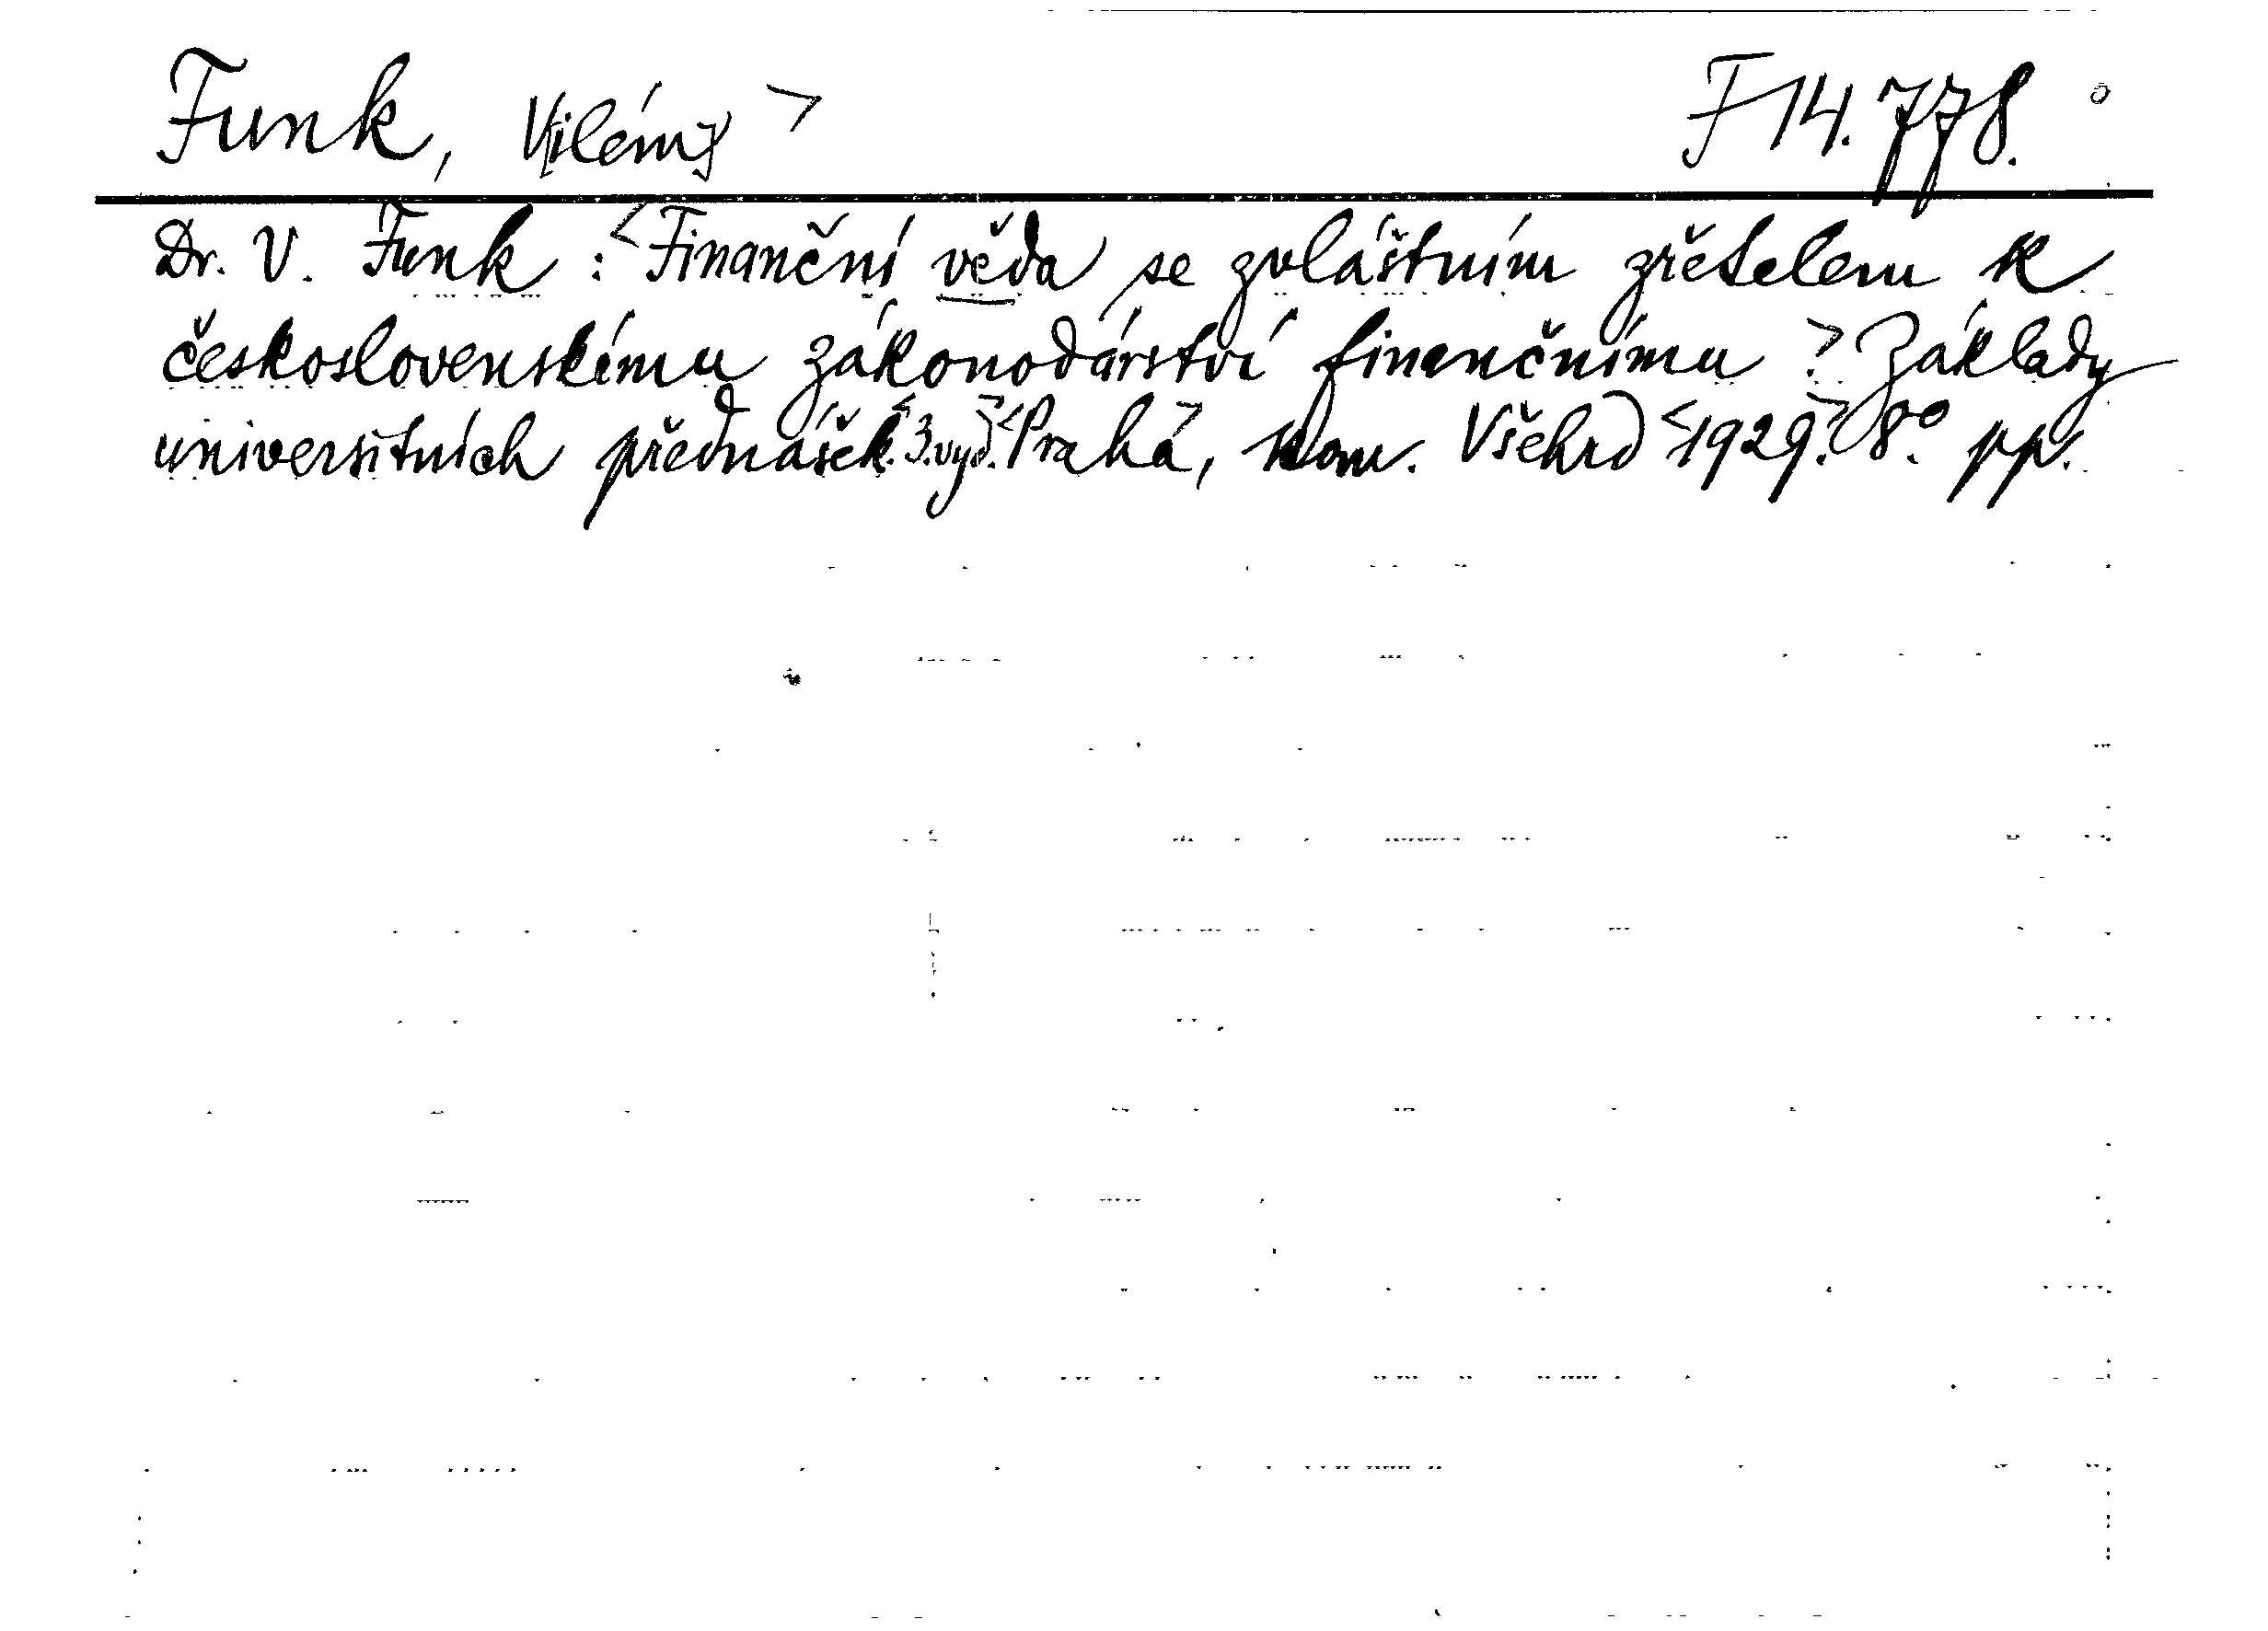 Funk, Vilém > F 14.778.
Dr. V. Funk : <Finanční věda se zvláštním zřetelem k
československému zákonodárství finančnímu.> Základy
universitních přednášek. <3. vyd.> <Praha>, nom. Všehrd <1929.> 8°. pp.